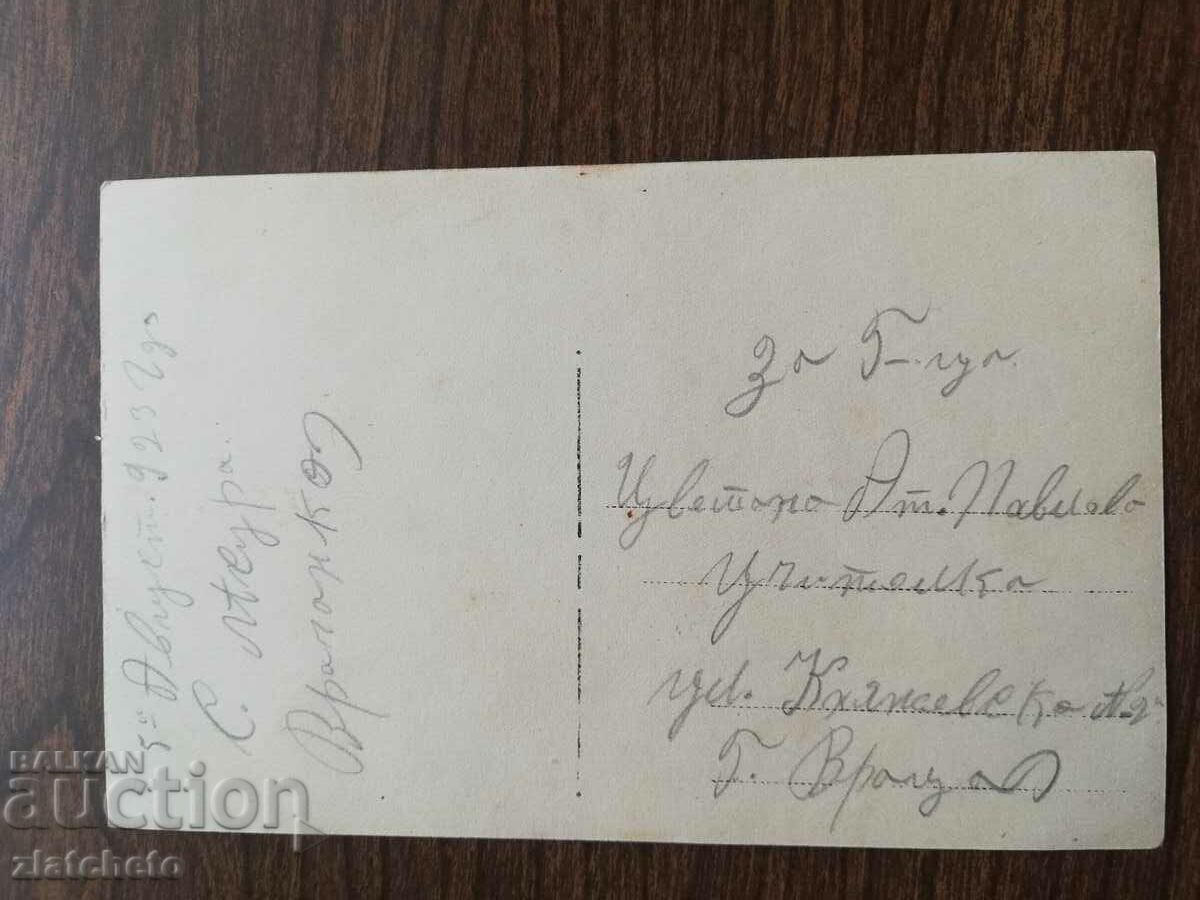 5- Август. 923 год
С.
Вратанско
За Г-ца
Цветана Ат. Павлова
Учителка
ул. Княжевска № 9
Г. Враца
BALKAN
auction
zlatcheto